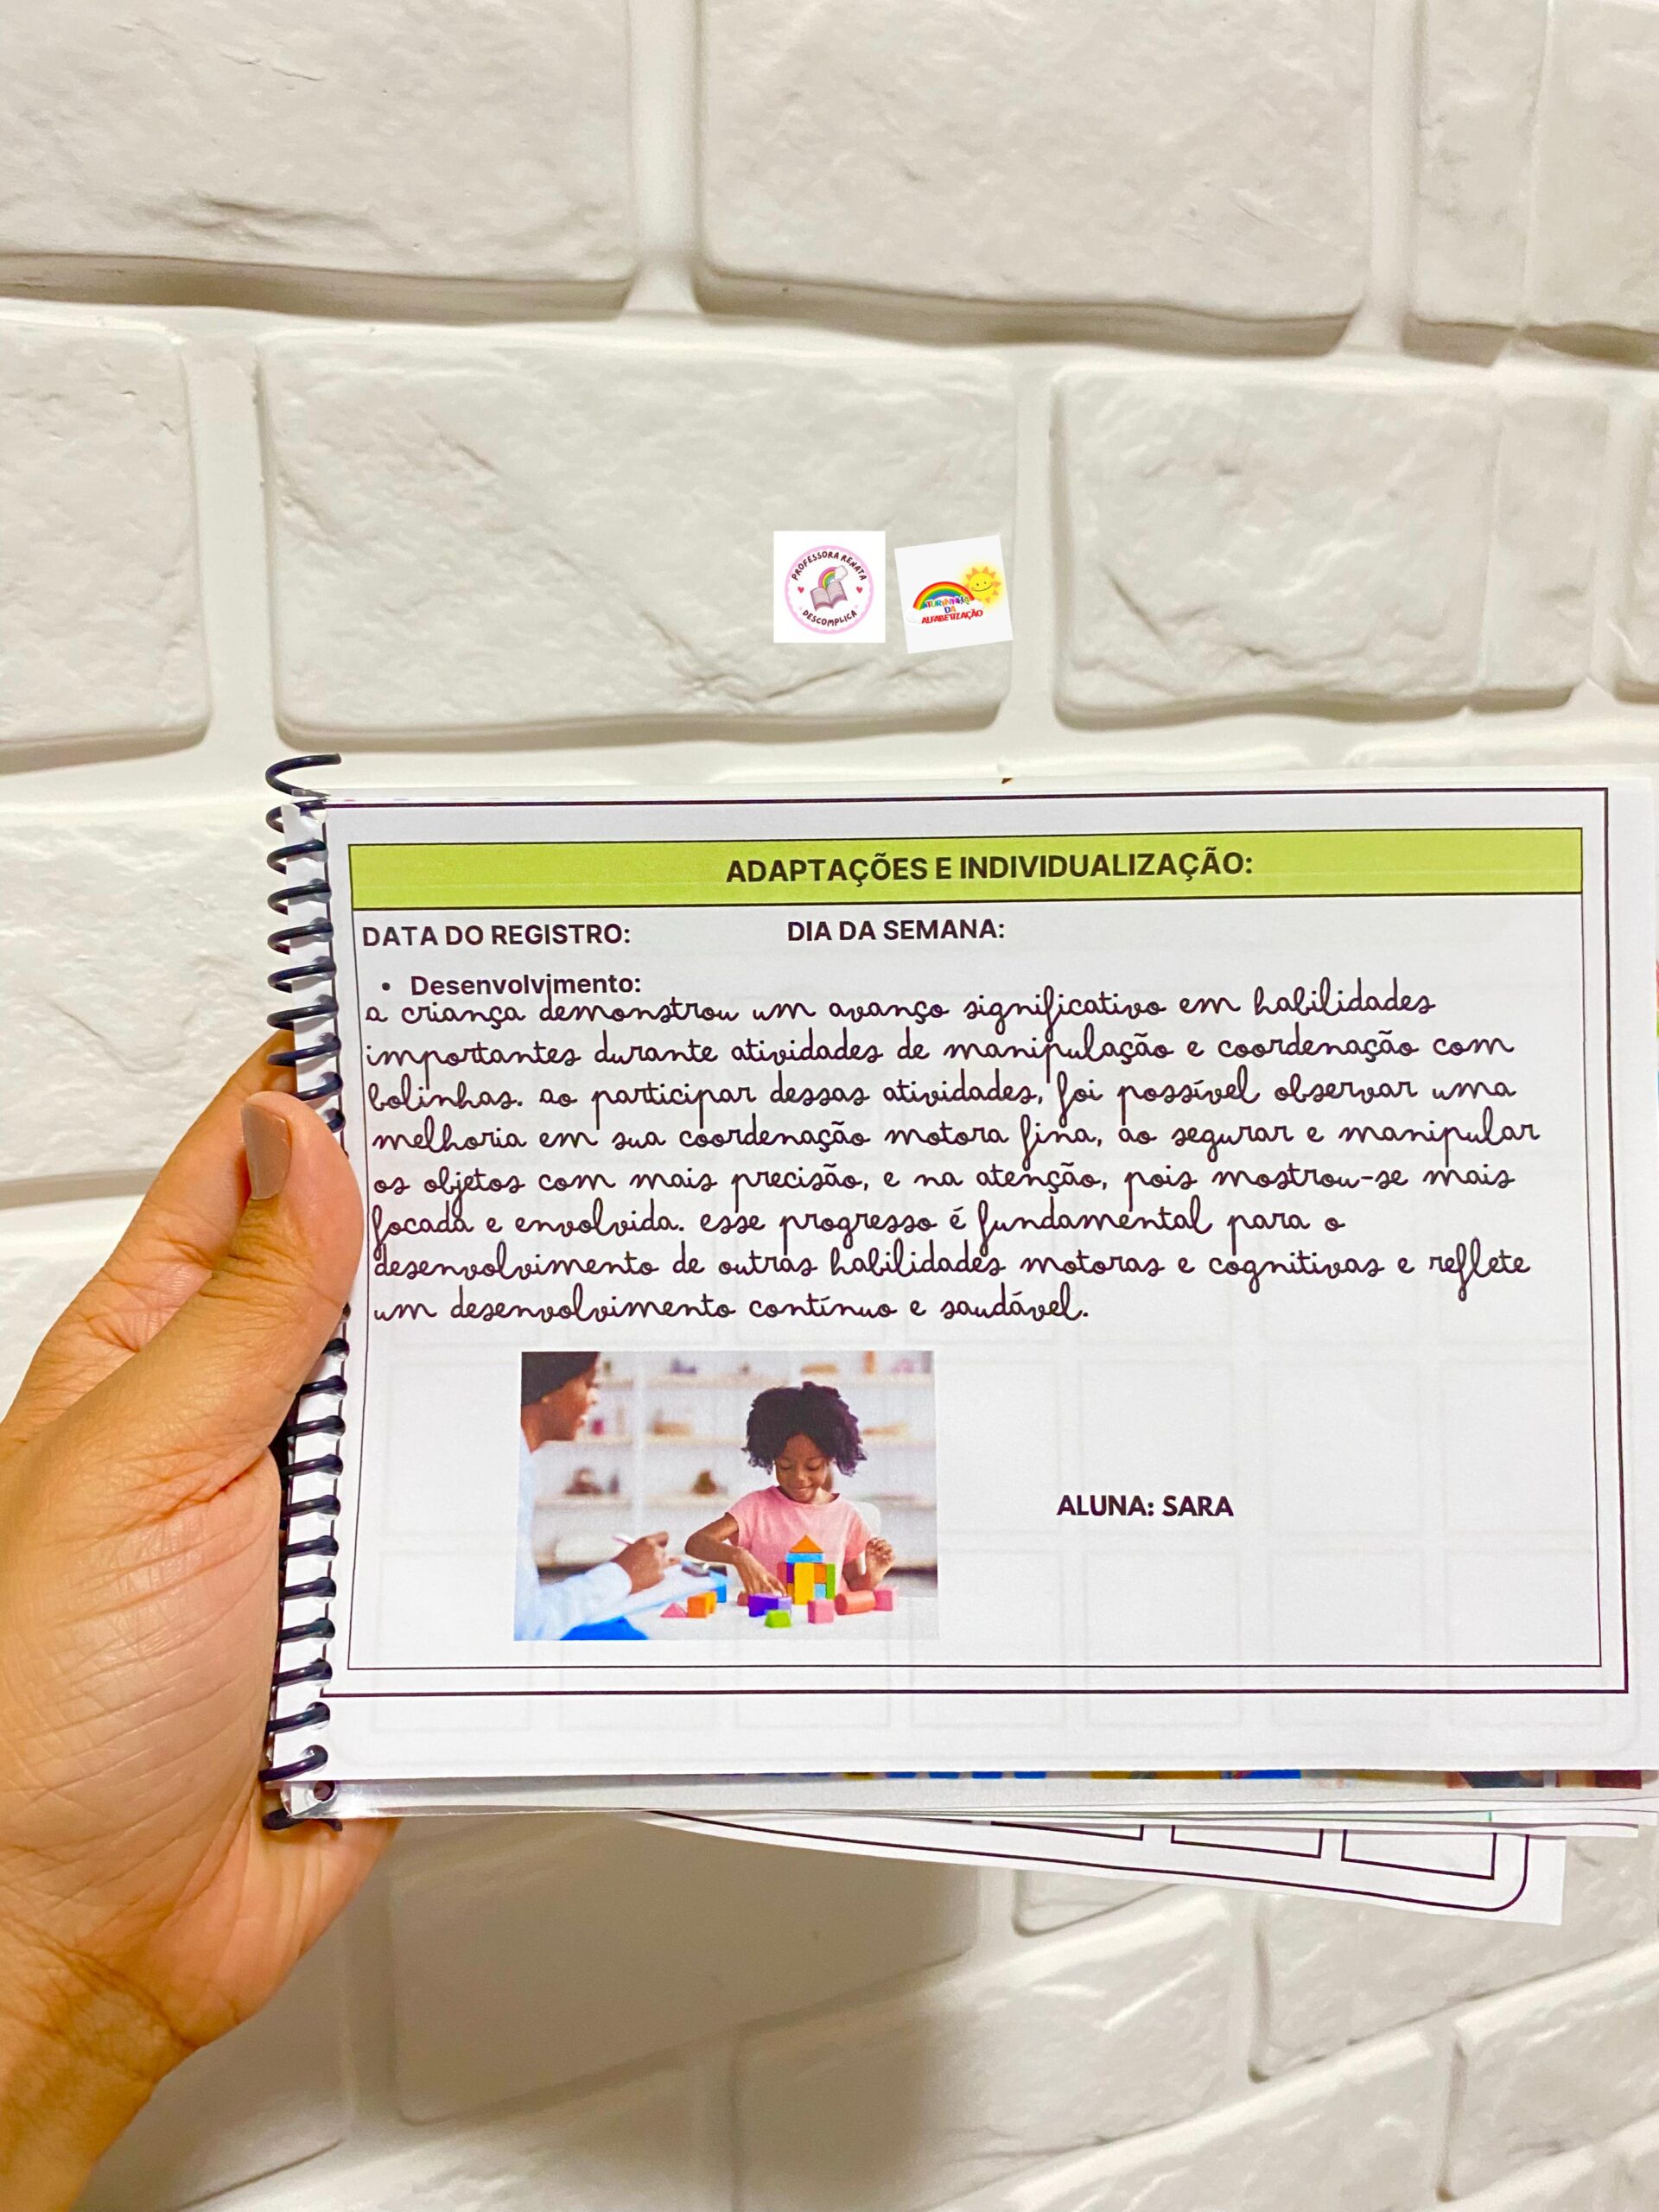 PROFESSORA RENATA
DESCOMPLICA
TURMINHA
DA
ALFABETIZAÇÃO
ADAPTAÇÕES E INDIVIDUALIZAÇÃO:
DATA DO REGISTRO: DIA DA SEMANA:
• Desenvolvimento:
a criança demonstrou um avanço significativo em habilidades
importantes durante atividades de manipulação e coordenação com
bolinhas. ao participar dessas atividades, foi possível observar uma
melhoria em sua coordenação motora fina, ao segurar e manipular
os objetos com mais precisão, e na atenção, pois mostrou-se mais
focada e envolvida. esse progresso é fundamental para o
desenvolvimento de outras habilidades motoras e cognitivas e reflete
um desenvolvimento contínuo e saudável.
ALUNA: SARA